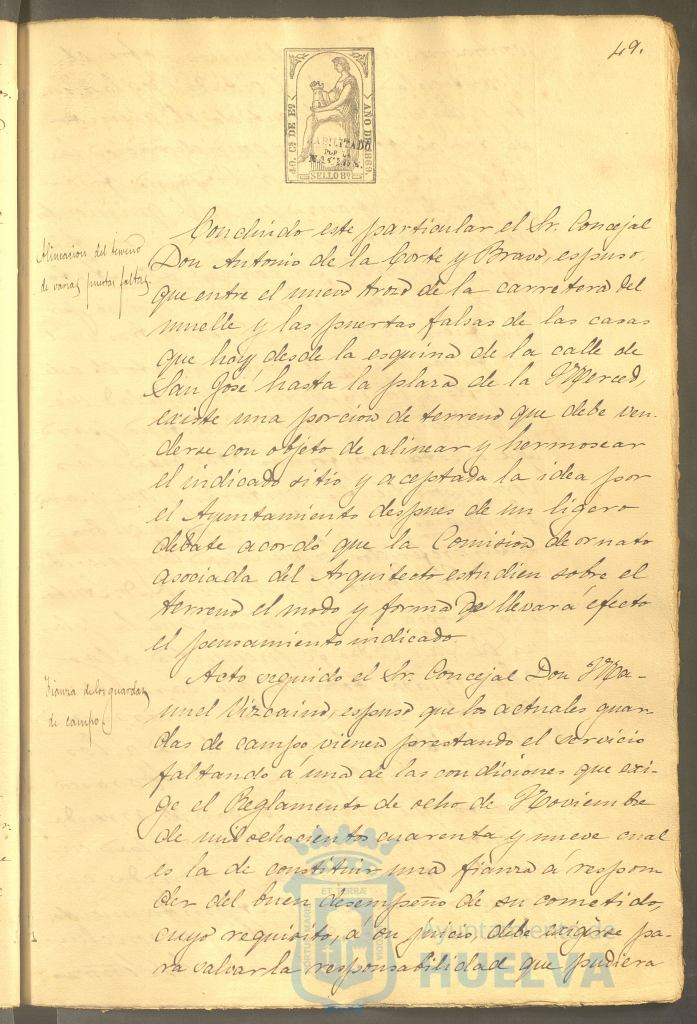 49.
40. Cs. DE Eo.
AÑO DE 1869.
HABILITADO
POR LA
NACION.
SELLO 8o.
Alineacion del terreno
de varias puertas falsas.
Concluido este particular el Sr. Concejal
Don Antonio de la Corte y Bravo, espuso,
que entre el nuevo trozo de la carretera del
muelle y las puertas falsas de las casas
que hay desde la esquina de la calle de
San José hasta la plaza de la Merced,
existe una porcion de terreno que debe ven-
derse con objeto de alinear y hermosear
el indicado sitio y aceptada la idea por
el Ayuntamiento despues de un ligero
debate acordó que la Comision de ornato
asociada del Arquitecto estudien sobre el
terreno el modo y forma de llevar á efecto
el pensamiento indicado.
Fianza de los guardas
de campo.
Acto seguido el Sr. Concejal Don Ma-
nuel Vizcaino, espuso que los actuales guar-
das de campo vienen prestando el servicio
faltando á una de las condiciones que exi-
ge el Reglamento de ocho de Noviembre
de mil ochocientos cuarenta y nueve cual
es la de constituir una fianza á respon-
der del buen desempeño de su cometido,
cuyo requisito, á su juicio, debe exigirse pa-
ra salvar la responsabilidad que pudiera
PORTUS MARIS
ET TERRÆ
CUSTODIA
Ayuntamiento de
HUELVA